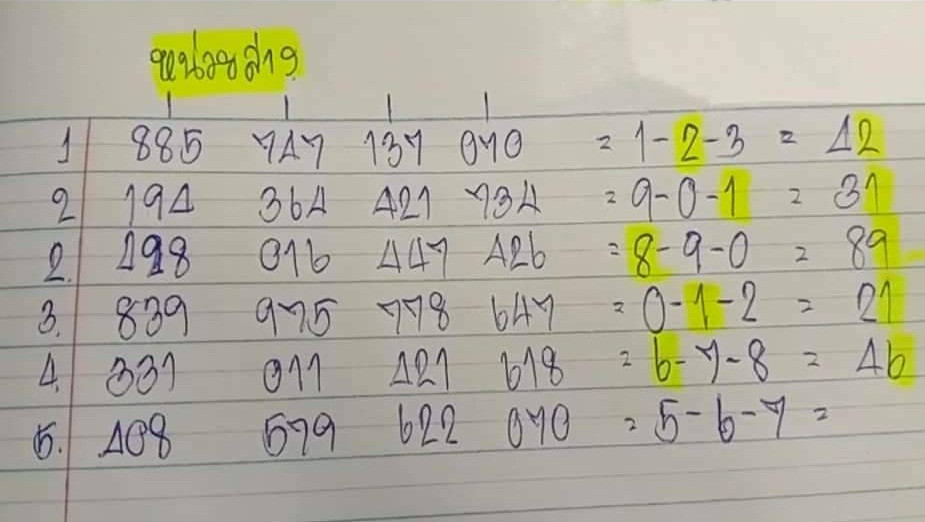 หน่วยล่าง
1 885 747 137 070 = 1-2-3 = 42
2 194 364 421 734 = 9-0-1 = 31
2. 498 016 447 426 = 8-9-0 = 89
3. 839 975 778 647 = 0-1-2 = 21
4. 331 011 421 618 = 6-7-8 = 46
5. 408 579 622 070 = 5-6-7 =